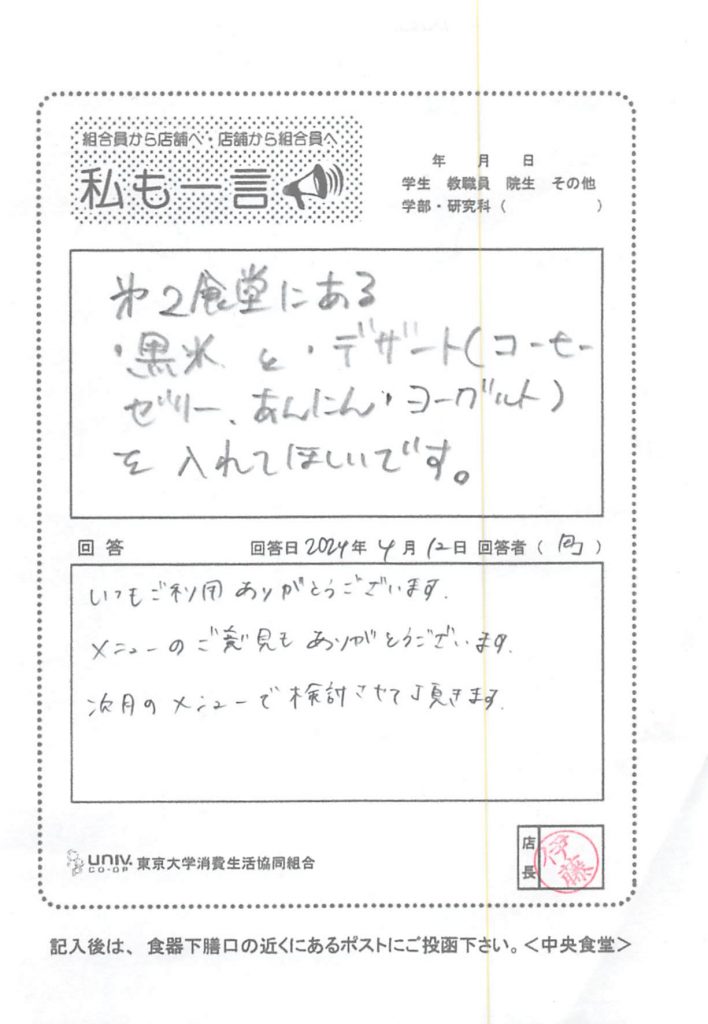 組合員から店舗へ・店舗から組合員へ
私も一言
年 月 日
学生 教職員 院生 その他
学部・研究科（ ）
第2食堂にある
・黒米 と ・デザート(コーヒー
ゼリー、あんにん・ヨーグルト)
を入れてほしいです。
回答 回答日 2024年 4月 12日 回答者（ ）
いつもご利用ありがとうございます.
メニューのご意見もありがとうございます.
次月のメニューで検討させて頂きます.
店長
伊藤
UNIV. CO-OP 東京大学消費生活協同組合
記入後は、食器下膳口の近くにあるポストにご投函下さい。＜中央食堂＞